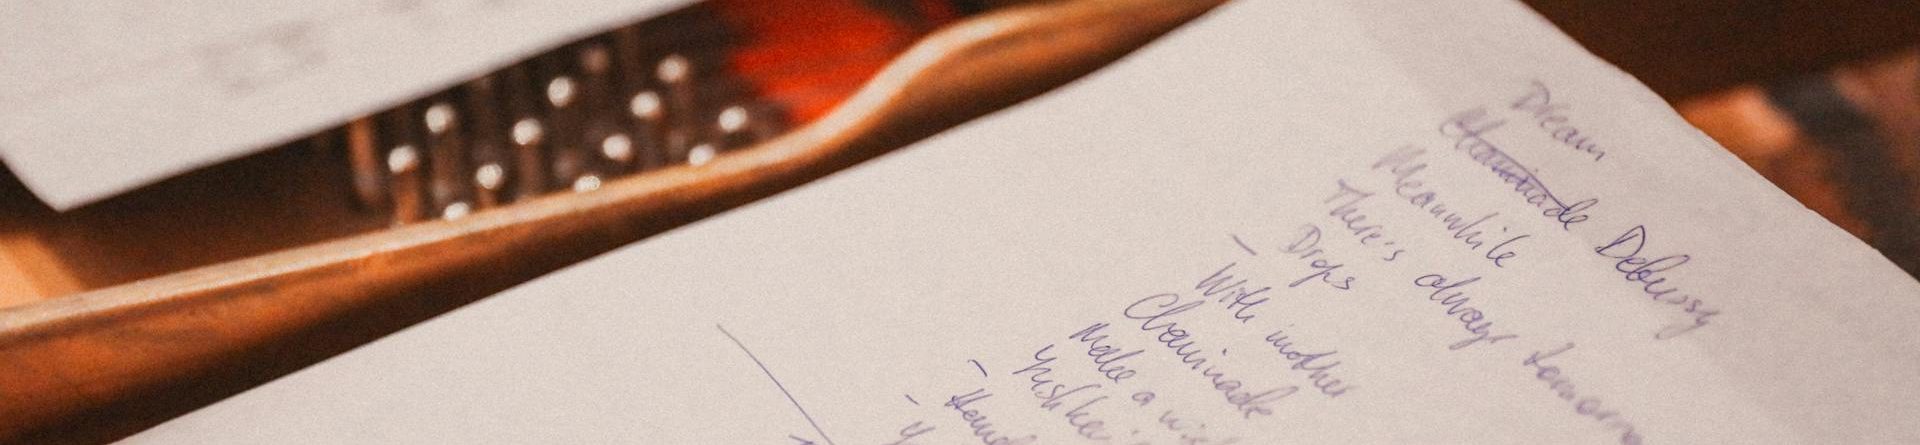 Dream
Chaminade Debussy
Meanwhile
There's always tomorrow
- Drops
With mother
Chaminade
Make a wish
-
-